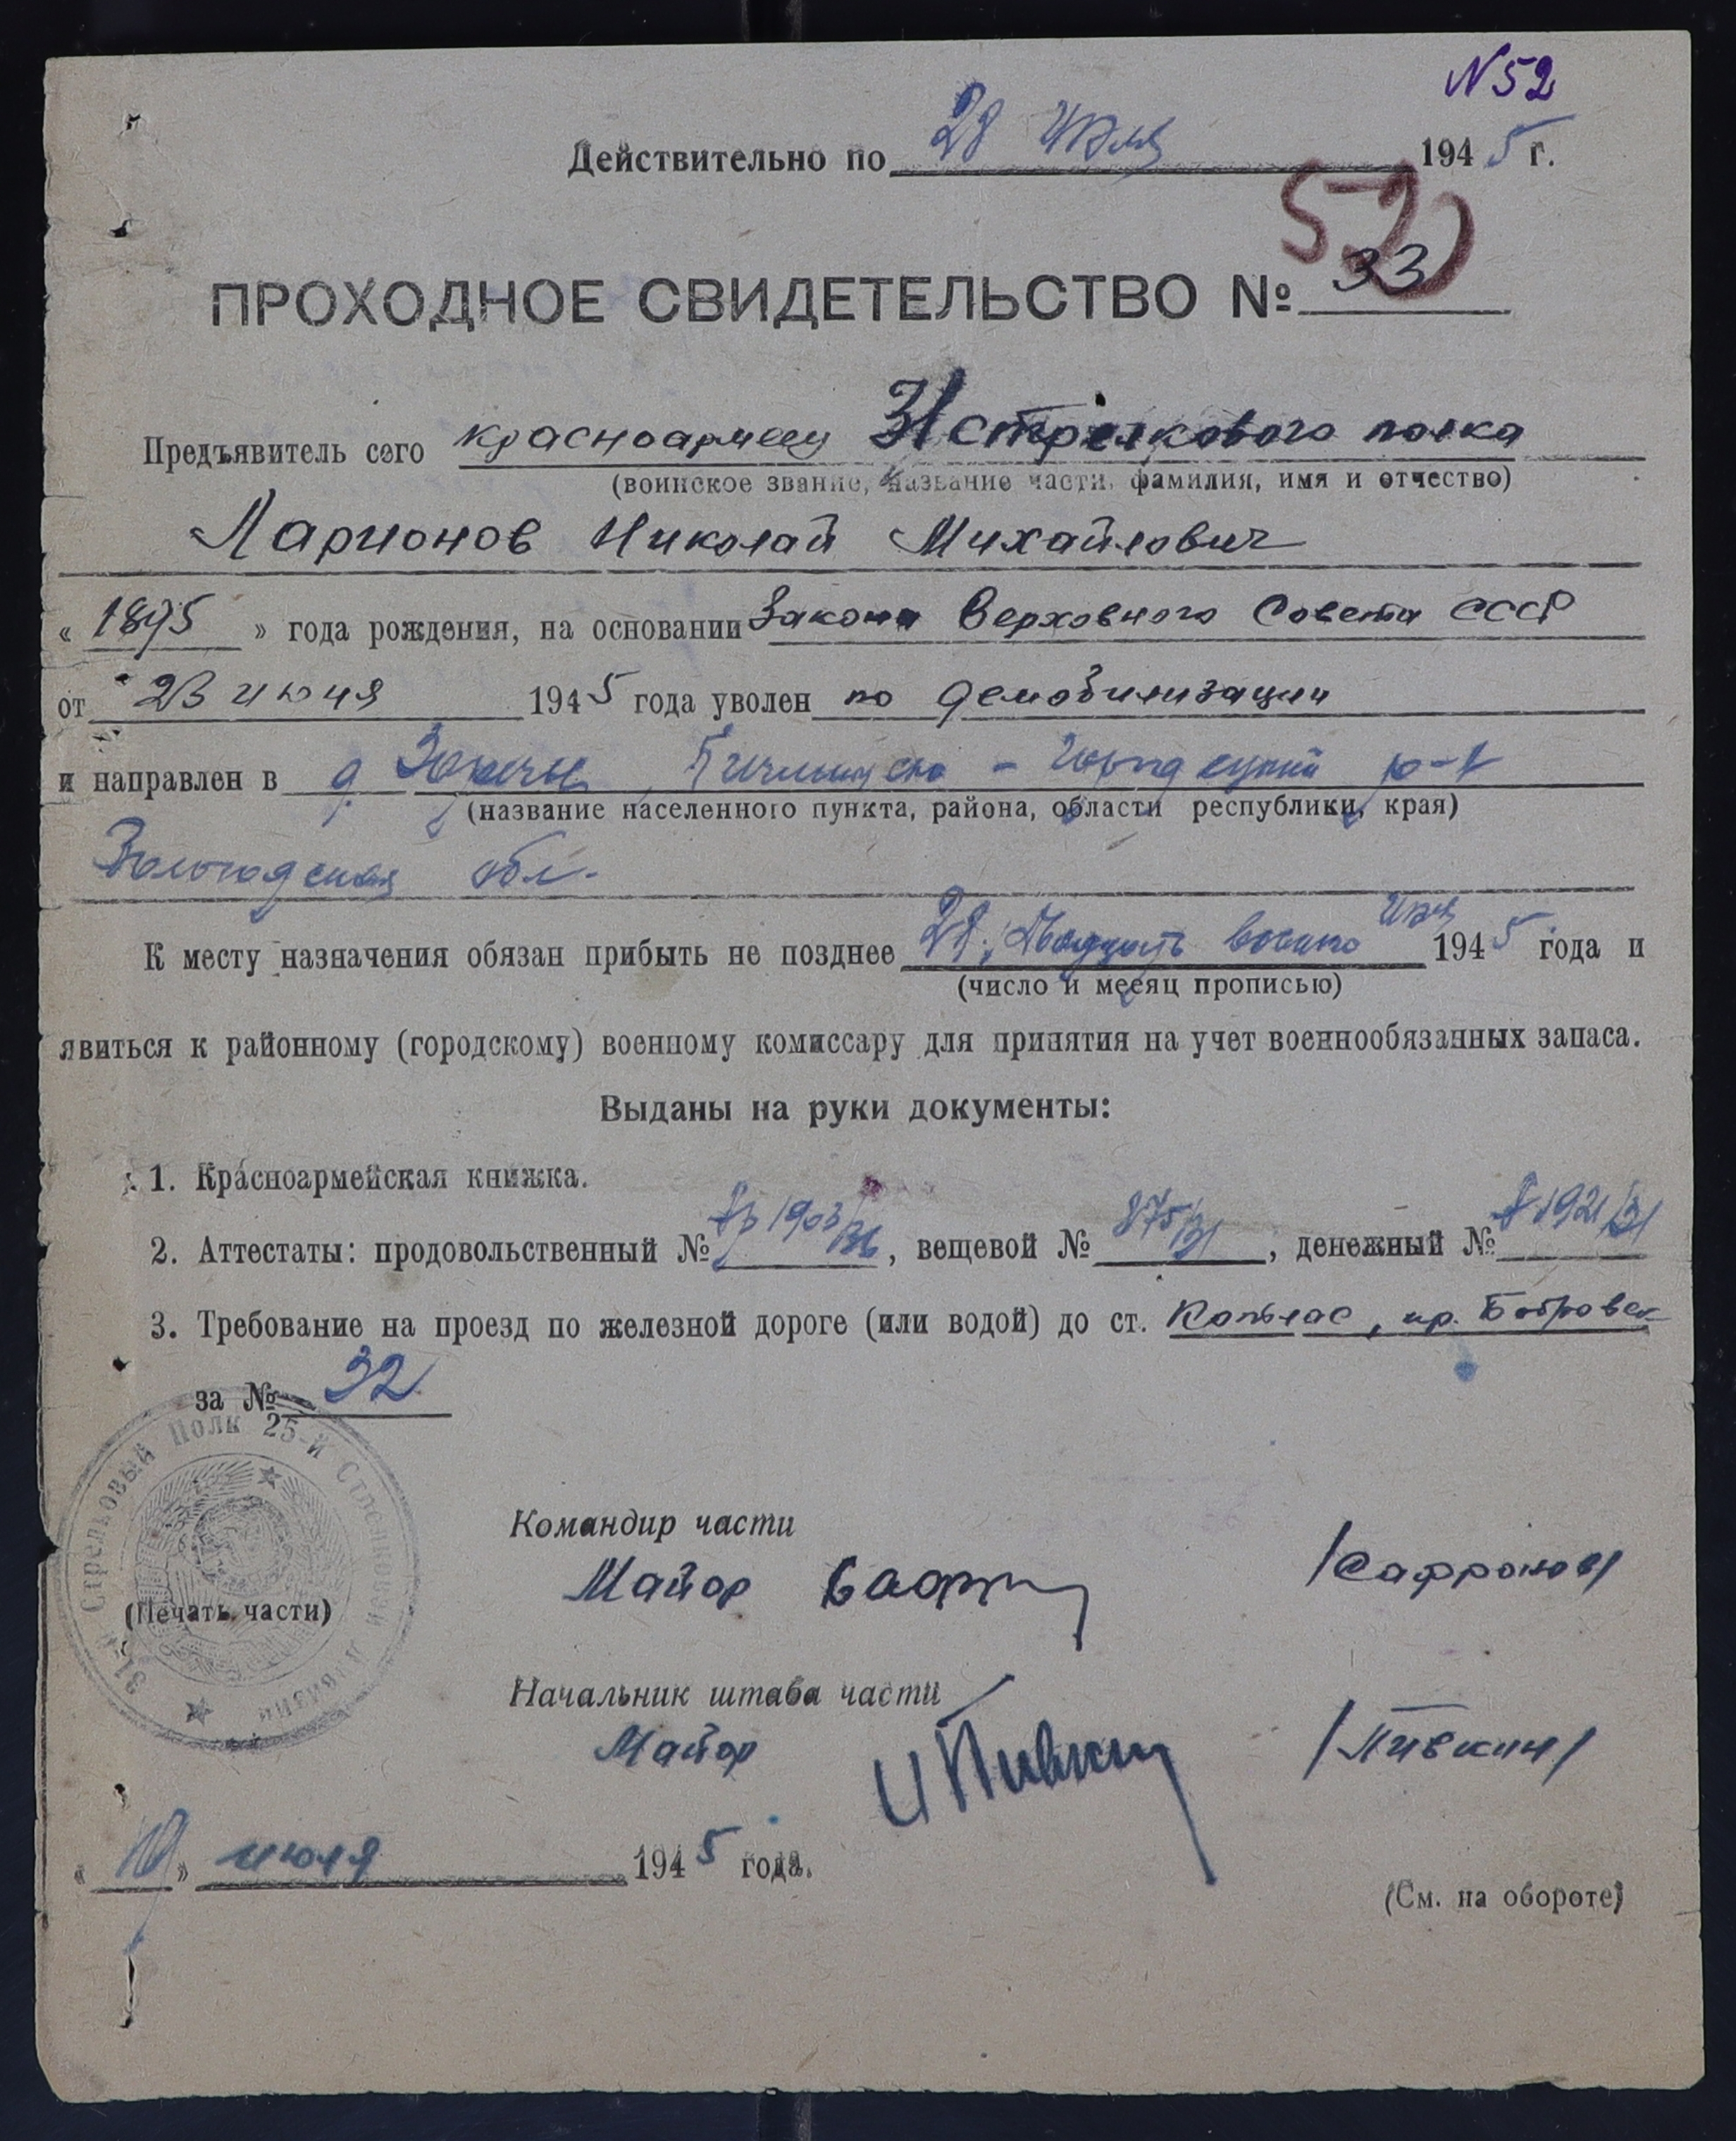 N 52
Действительно по 28 июля 1945 г.
52
ПРОХОДНОЕ СВИДЕТЕЛЬСТВО № 33
Предъявитель сего красноармеец 31 стрелкового полка
(воинское звание, название части, фамилия, имя и отчество)
Ларионов Николай Михайлович
« 1895 » года рождения, на основании Закона Верховного Совета СССР
от 23 июня 1945 года уволен по демобилизации
и направлен в д. Кичменгско - Городецкий р-н
(название населенного пункта, района, области республики, края)
Вологодская обл.
К месту назначения обязан прибыть не позднее 28, Двадцать восьмого июля 1945 года и
(число и месяц прописью)
явиться к районному (городскому) военному комиссару для принятия на учет военнообязанных запаса.
Выданы на руки документы:
1. Красноармейская книжка.
2. Аттестаты: продовольственный № 1903/31, вещевой № 875/31, денежный № 1921/31
3. Требование на проезд по железной дороге (или водой) до ст. Котлас, пр.
за № 32
31-й Стрелковый Полк 25-й Стрелковой Дивизии
Командир части
Майор /Сафронов/
(Печать части)
Начальник штаба части
Майор И Пивкин /Пивкин/
« 10 » июля 1945 года.
(См. на обороте)